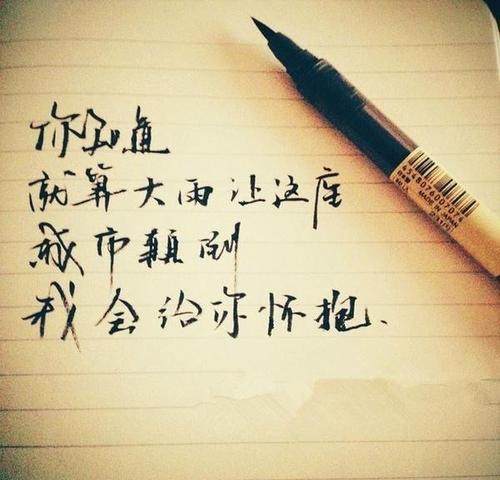 你知道
就算大雨让这座
城市颠倒
我会给你怀抱、
MADE IN JAPAN